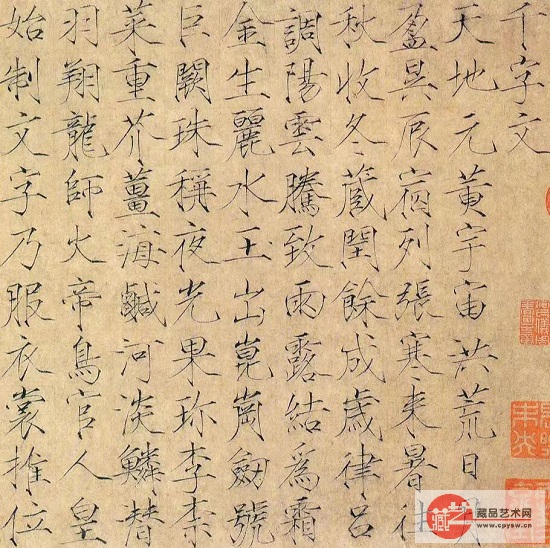 千字文
天地元黃宇宙洪荒日
盈昃辰宿列張寒来暑往
秋收冬蔵閏餘成歲律吕
調陽雲騰致雨露結爲霜
金生麗水玉出崑崗劒號
巨闕珠稱夜光果珍李柰
菜重芥薑海鹹河淡鱗潜
羽翔龍師火帝鳥官人皇
始制文字乃服衣裳推位
藏艺
藏品艺术网
www.cpysw.cn